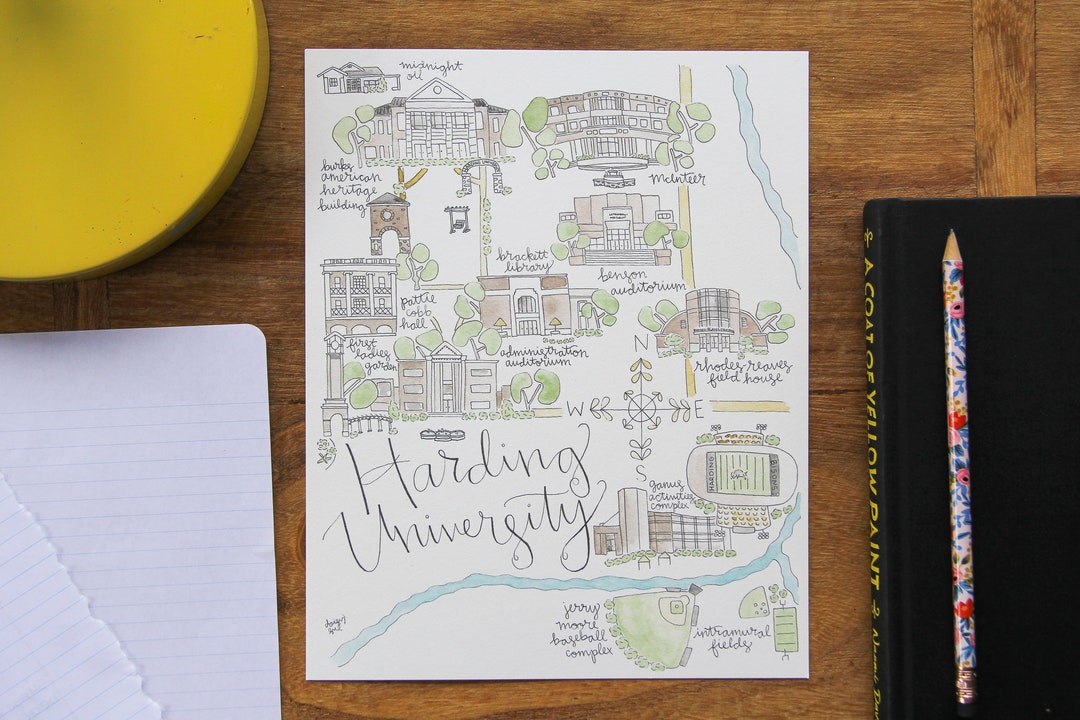 midnight
oil
burks
american
heritage
building
mcInteer
brackett
library
benson
auditorium
pattie
cobb
hall
first
ladies
garden
administration
auditorium
rhodes-reaves
field house
N
W
E
S
Harding
University
HARDING
BISONS
ganus
activities
complex
jerry
moore
baseball
complex
intramural
fields
A COAT OF YELLOW PAINT